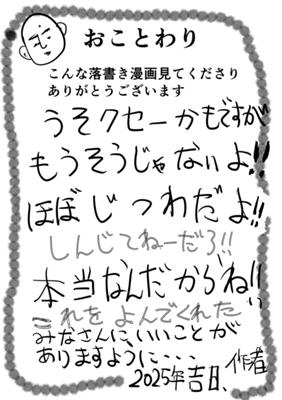 おことわり
こんな落書き漫画見てくださり
ありがとうございます
うそクセーかもですが
もうそうじゃないよ!!
ほぼじつわだよ!!
しんじてねーだろ!!
本当なんだからね!!
これをよんでくれた
みなさんに、いいことが
ありますように・・・
2025年吉日、作者